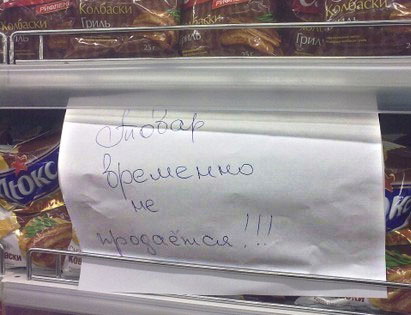 Колбаски
Гриль
Колбаски
Гриль
Товар
временно
не
продаётся!!!
люкс